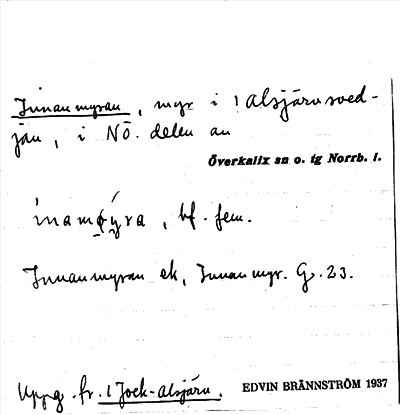 Innanmyran, myr i 1 Alsjärvsved-
jan, i NÖ. delen av
Överkalix sn o. tg Norrb. l.
ínamǿyra, bf. fem.
Innanmyran ek, Innanmyr. G. 23.
Uppg. fr. 1 Jock-Alsjärv.
EDVIN BRÄNNSTRÖM 1937